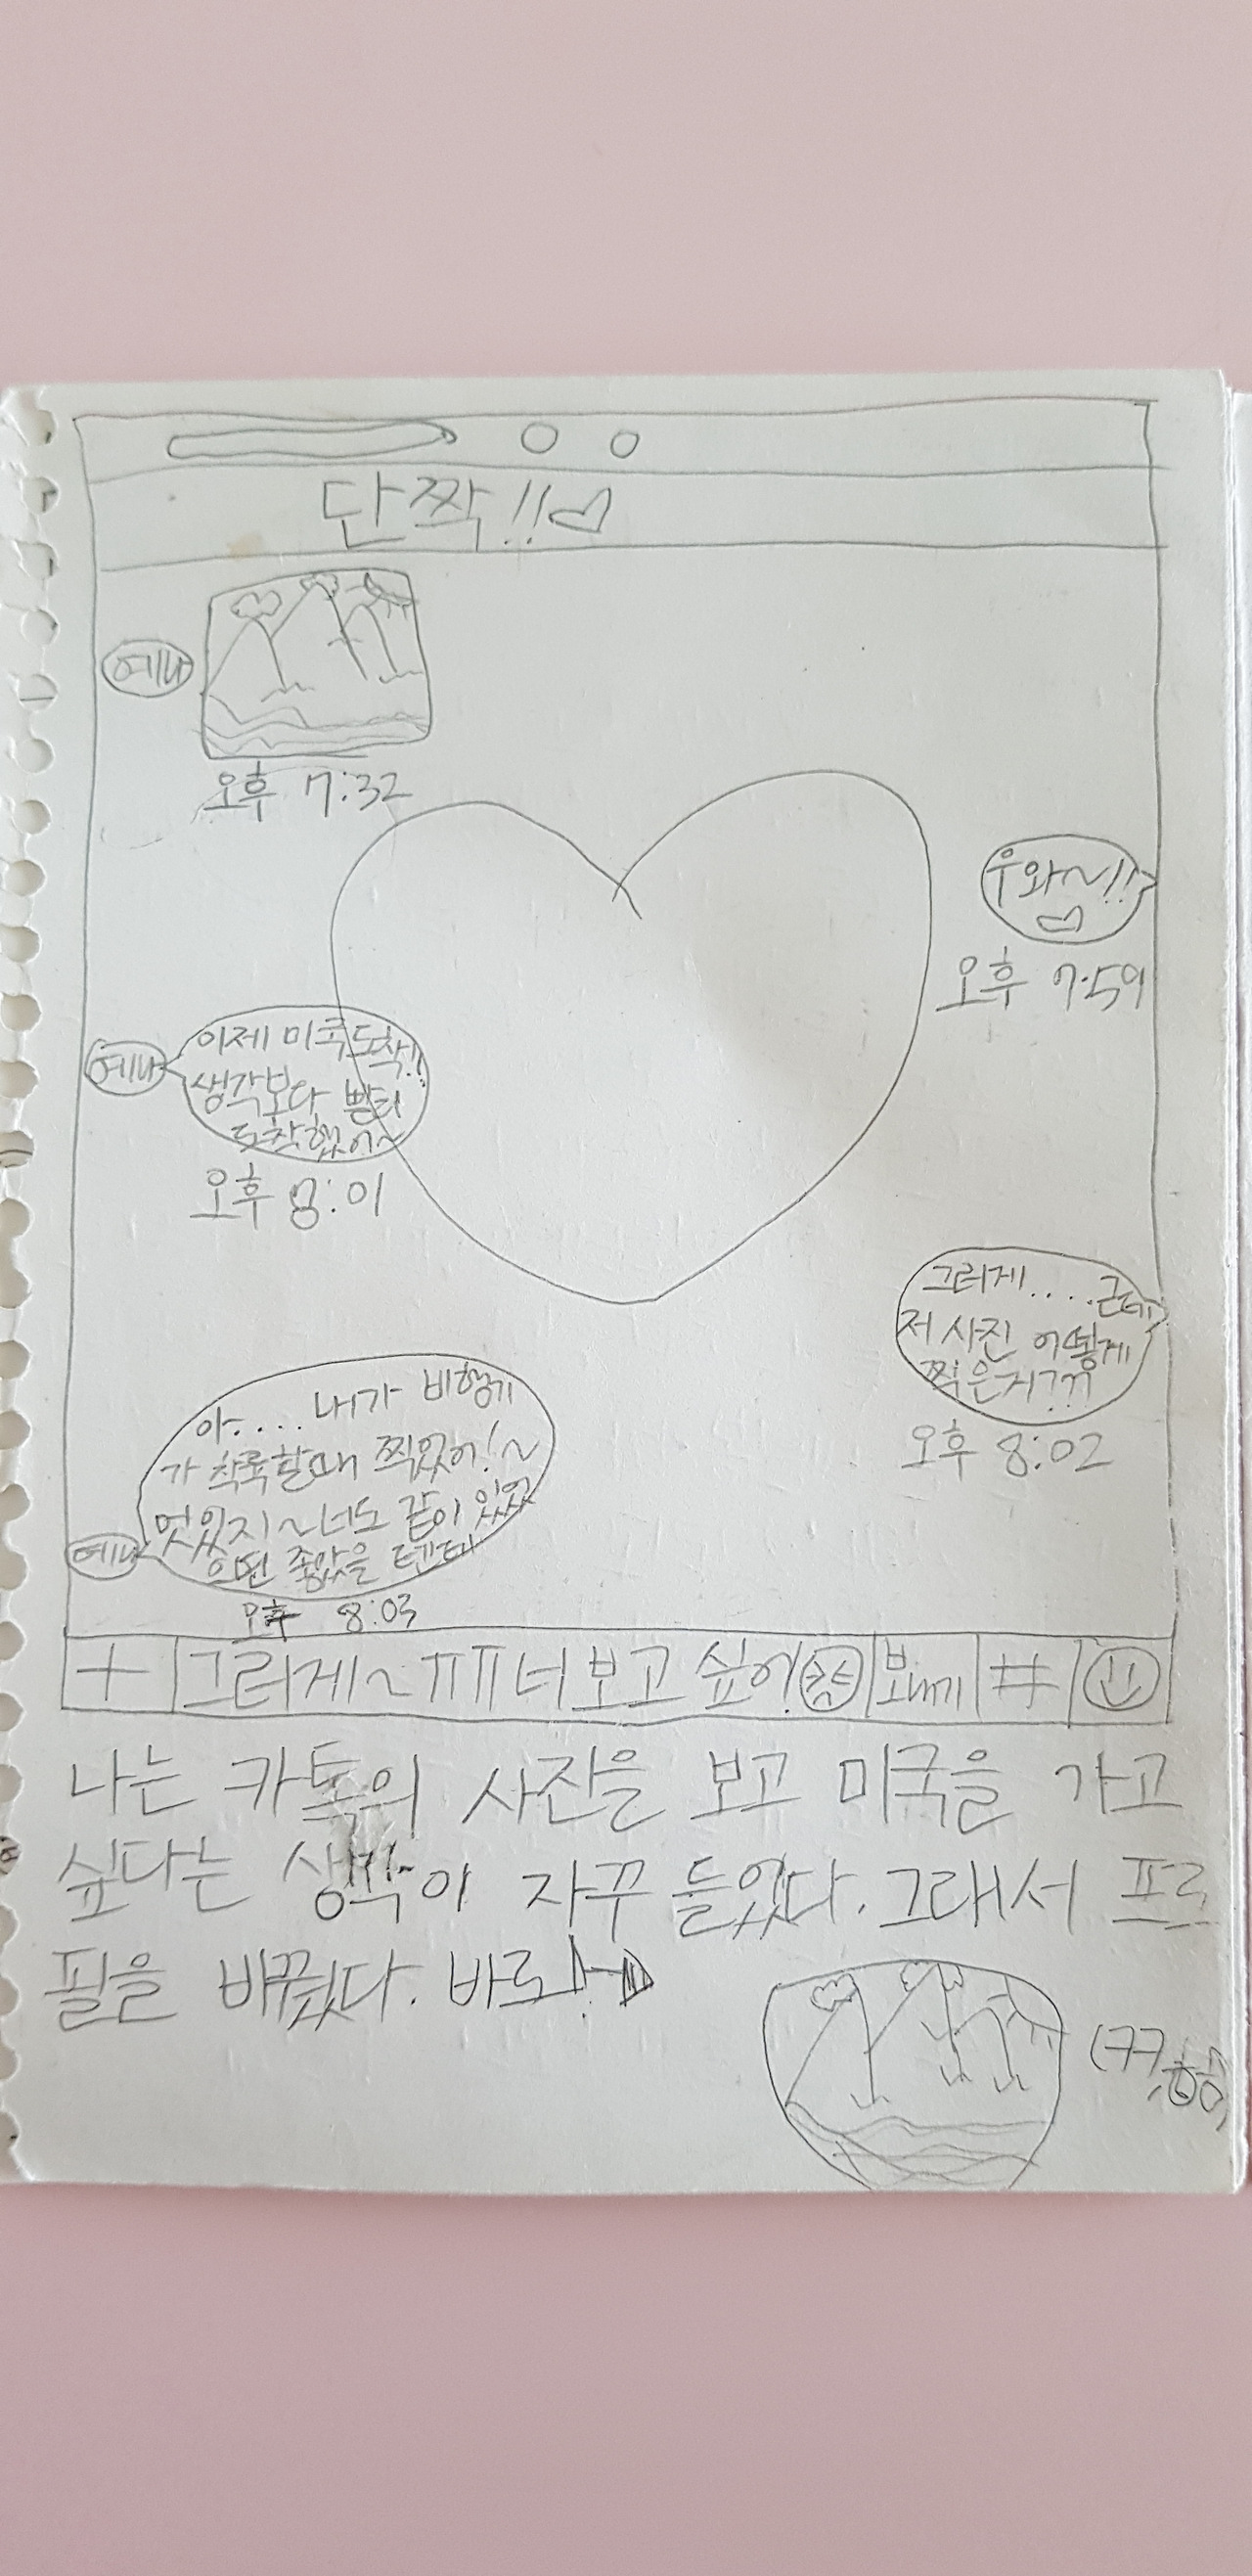 단짝!!♡
예나
오후 7:32
우와~!!
♡
오후 7:59
예나
이제 미국도착!!
생각보다 빨리
도착했어~
오후 8:01
그러게....근데
저 사진 어떻게
찍은거???
오후 8:02
아.... 내가 비행기
가 착륙할때 찍었어!~
멋있지~너도 같이 있었
으면 좋았을 텐데
예나
오후 8:03
+ 그러게~ㅠㅠ너보고 싶어! 보내기 #
나는 카톡의 사진을 보고 미국을 가고
싶다는 생각이 자꾸 들었다. 그래서 프로
필을 바꿨다. 바로!